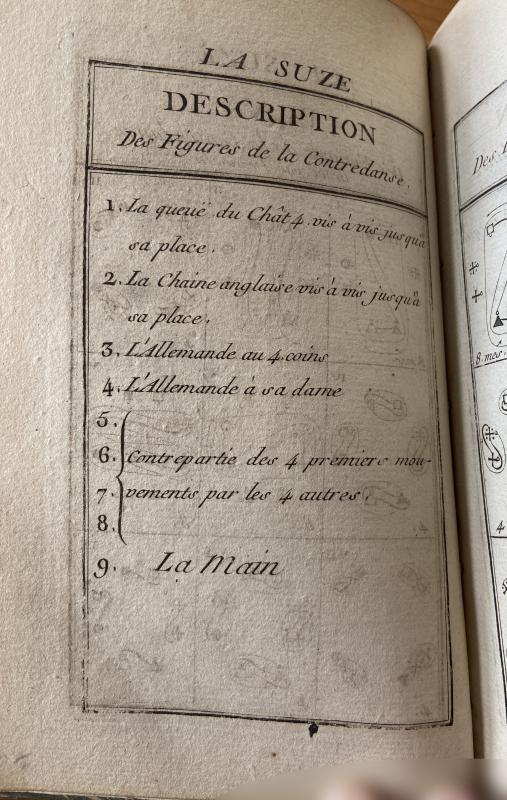 LA SUZE
DESCRIPTION
Des Figures de la Contredanse.
1. La queuë du Chât 4. vis à vis jusqu'à
sa place.
2. La Chaine anglaise vis à vis jusqu'à
sa place.
3. L'Allemande au 4. coins
4. L'Allemande à sa dame
5.
6. Contrepartie des 4 premiers mou-
7. vements par les 4 autres.
8.
9. La Main
Des
8. mes.
4